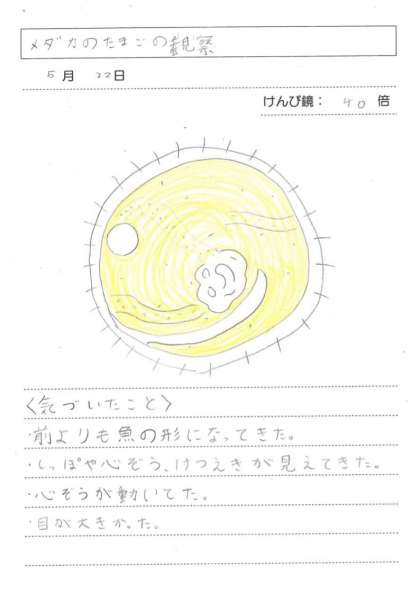 メダカのたまごの観察
5月 22日
けんび鏡： 40倍
〈気づいたこと〉
・前よりも魚の形になってきた。
・しっぽや心ぞう、けつえきが見えてきた。
・心ぞうが動いてた。
・目が大きかった。